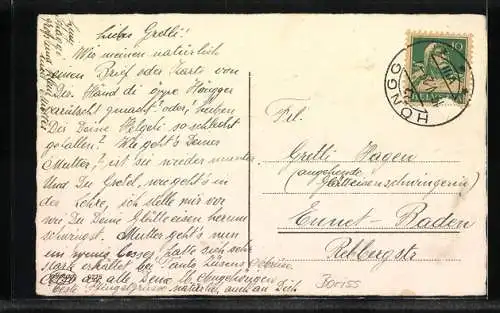 Liebes Gretli!
Wir meinen natürlich
einen Brief oder Karte von
Dir. Händ di öppe Höngger
verütscht gmacht? oder, haben
Dir Deine Helgeli so schlecht
gefallen? Wie geht's Deiner
Mutter? ist sie wieder munter.
Und Du Gretel, wie geht's in
der Lehre, ich stelle mir vor
wie Du Deine Glätteeisen herum
schwingst. Mutter geht's nun
ein wenig besser, hatte sich sehr
stark erkältet bei Tante
an alle Deine Angehörigen
beste Pfingstgrüsse natürlich auch an Dich
HÖNGG
HELVETIA
10
Frl.
Gretli Hagen
(angehende
Glätteisenschwingerin)
Ennet-Baden
Rebbergstr.
Boriss